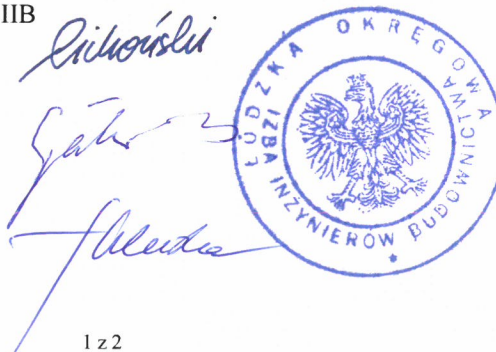 IIB
Cichoński
ŁÓDZKA OKRĘGOWA
IZBA INŻYNIERÓW BUDOWNICTWA
1 z 2